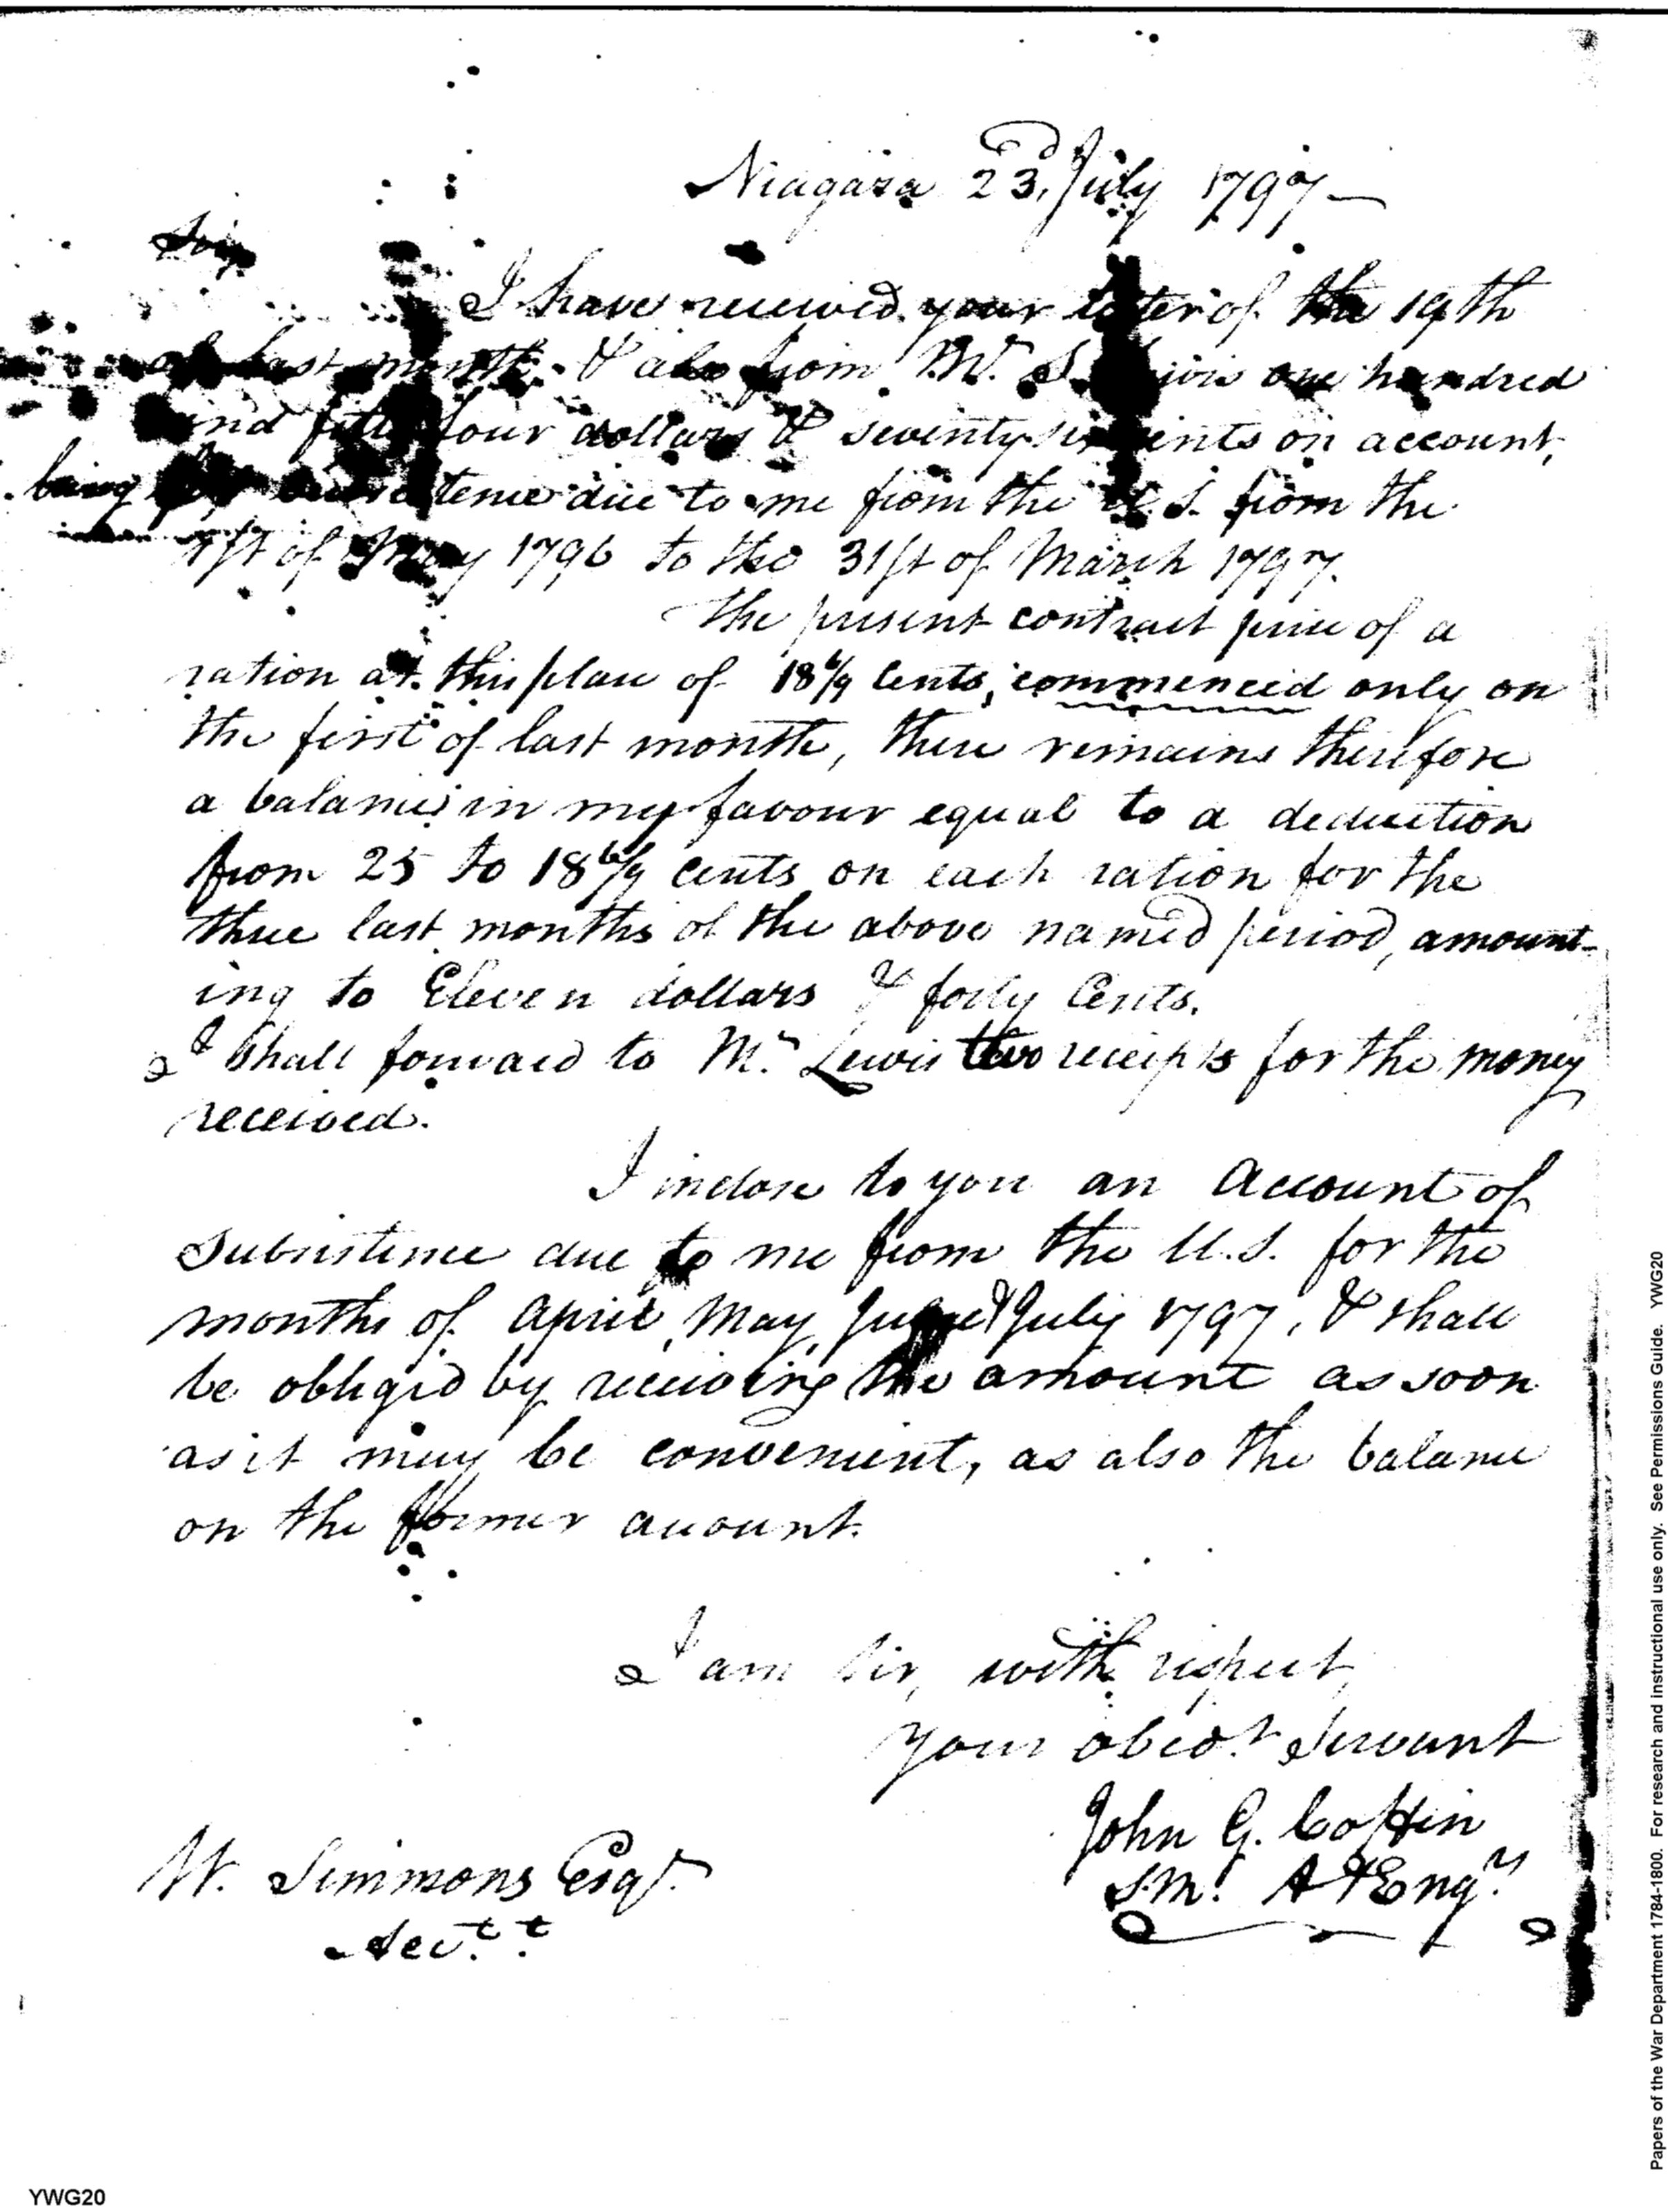 Niagara 23d. July 1797 —
Sir
I have received your letter of the 19th
of last month & also from W. S. Lewis one hundred
and fifty four dollars & seventy six cents on account,
being subsistence due to me from the U.S. from the
1st of May 1796 to the 31st of March 1797.
The present contract price of a
ration at this place of 18 6/9 Cents, commenced only on
the first of last month, there remains therefore
a balance in my favour equal to a deduction
from 25 to 18 6/9 cents on each ration for the
three last months of the above named period, amount-
ing to Eleven dollars & forty Cents.
I shall forward to Mr. Lewis two receipts for the money
received.
I inclose to you an Account of
Subsistence due to me from the U.S. for the
months of April, May, June & July 1797, & shall
be obliged by receiving the amount as soon
as it may be convenient, as also the balance
on the former account.
I am Sir, with respect,
your obedt. Servant
John G. Coffin
S.M. A & Engrs.
W. Simmons Esqr.
Acctt.
Papers of the War Department 1784-1800. For research and instructional use only. See Permissions Guide. YWG20
YWG20